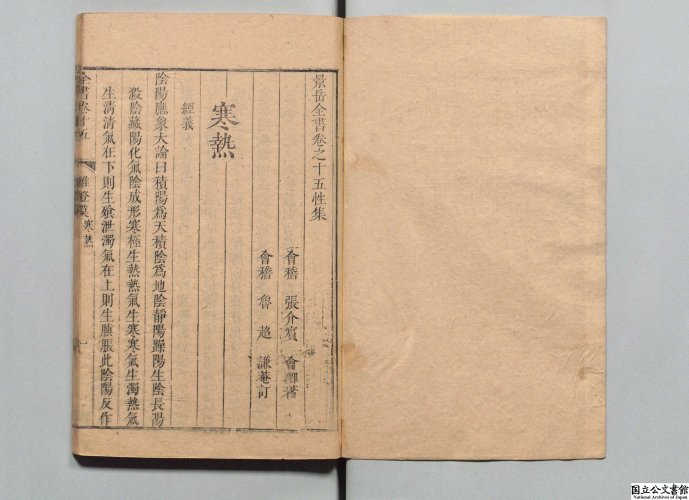 景岳全書卷之十五性集
會稽 張介賓 會卿著
會稽 魯超 謙菴訂
寒熱
經義
陰陽應象大論曰積陽爲天積陰爲地陰靜陽躁陽生陰長陽
殺陰藏陽化氣陰成形寒極生熱熱極生寒寒氣生濁熱氣
生清清氣在下則生飧泄濁氣在上則生䐜脹此陰陽反作
全書卷十五
雜證謨 寒熱
一
国立公文書館
National Archives of Japan